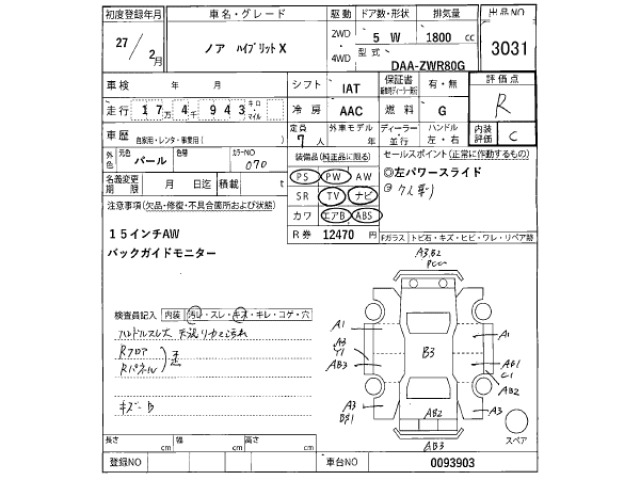 初度登録年月 車名・グレード 駆動 ドア数・形状 排気量 出品NO
27 / 2月 ノア ハイブリットX 2WD ・ 4WD 5 W 1800 cc 3031
型式 DAA-ZWR80G
車検 年 月 シフト IAT 保証書 有・無 評価点
走行 17万4千943 キロ・マイル 冷房 AAC 燃料 G R
車歴 自家用・レンタ・事業用( ) 定員 7人 外車モデル 年 ディーラー・並行 ハンドル 左・右 内装評価 C
外色 元色 パール 色替 カラーNO 070 装備品(純正品に限る) セールスポイント(正常に作動するもの)
名義変更期限 月 日迄 積載 t PS PW AW ◎左パワースライド
注意事項(欠品・修復・不具合箇所および状態) SR TV ナビ
カワ エアB ABS
15インチAW R券 12470 円 Fガラス トビ石・キズ・ヒビ・ワレ・リペア跡
バックガイドモニター
A3,B2
検査員記入 内装 汚レ・スレ・キズ・キレ・コゲ・穴
ハンドルスレ大
A1 A1
Rフロア
A3
Y1 B3 AB1
C1
Rパネル
AB3 AB2
キズ・B
A3 AB2 A3
AB3 スペア
長さ cm 幅 cm 高さ cm
登録NO 車台NO 0093903